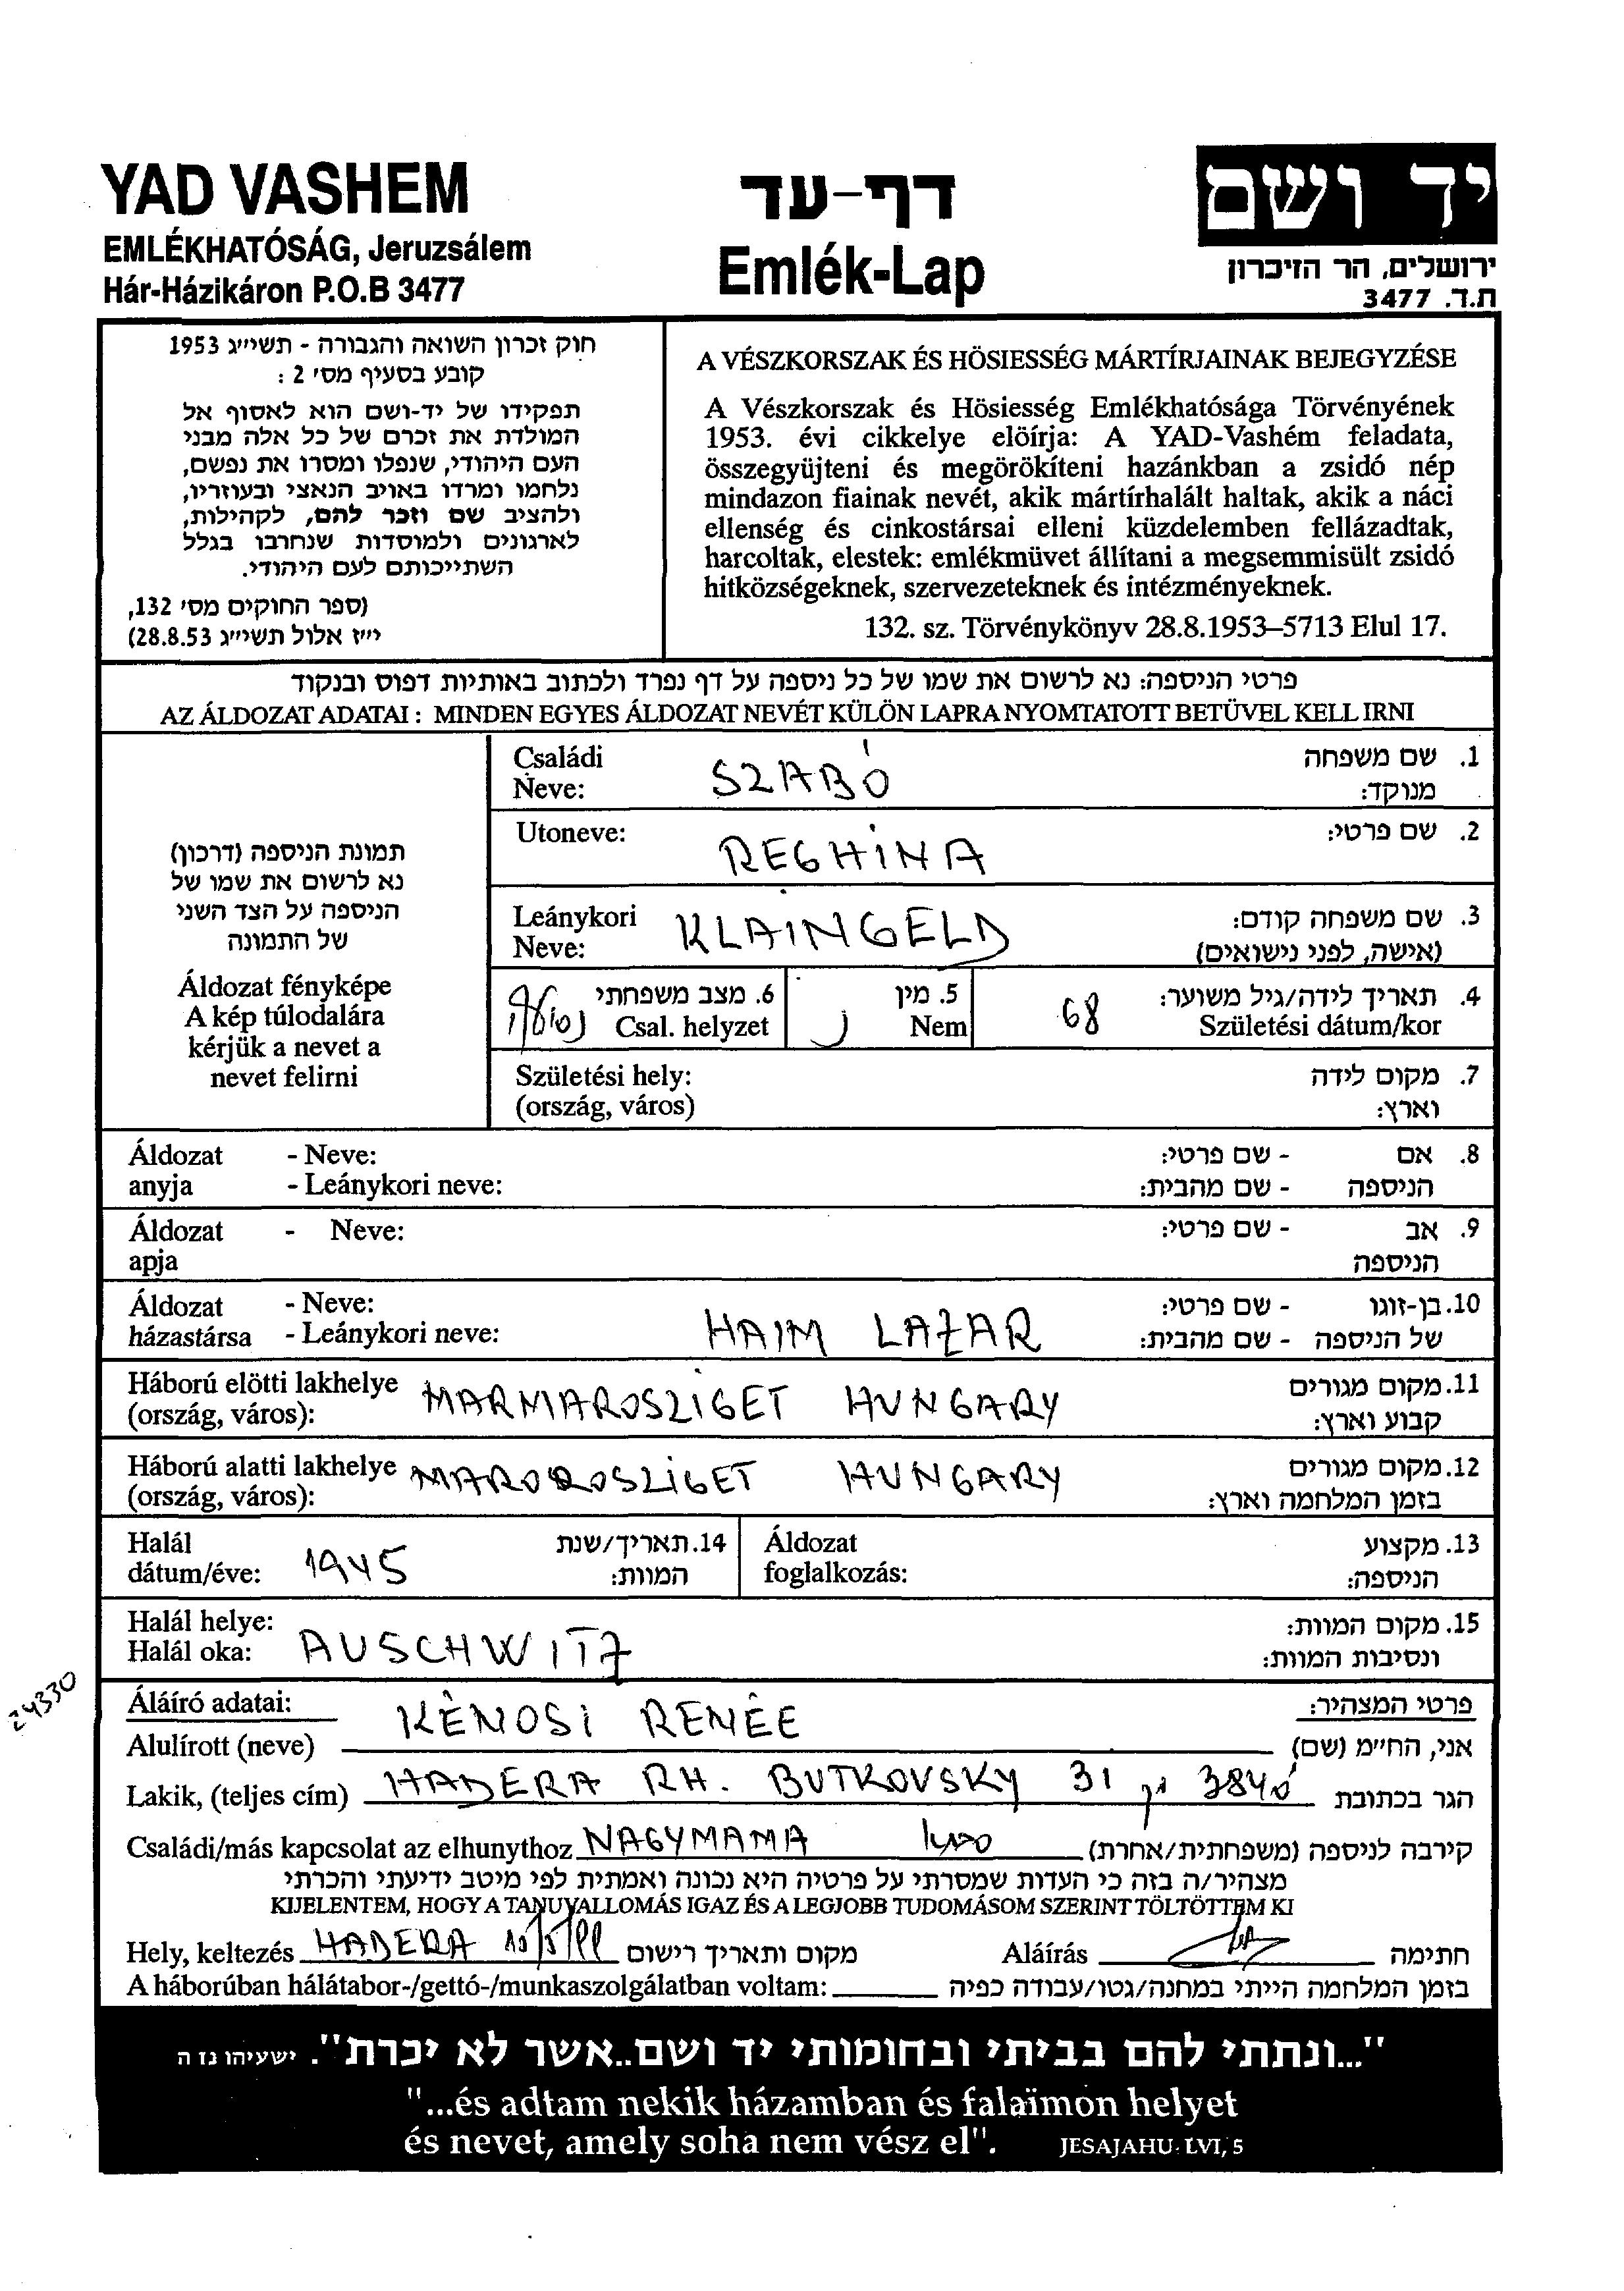 YAD VASHEM
EMLÉKHATÓSÁG, Jeruzsálem
Hár-Házikáron P.O.B 3477
דף-עד
Emlék-Lap
יד ושם
ירושלים, הר הזיכרון
ת.ד. 3477
חוק זכרון השואה והגבורה - תשי״ג 1953
קובע בסעיף מס׳ 2 :
תפקידו של יד-ושם הוא לאסוף אל
המולדת את זכרם של כל אלה מבני
העם היהודי, שנפלו ומסרו את נפשם,
נלחמו ומרדו באויב הנאצי ובעוזריו,
ולהציב שם וזכר להם, לקהילות,
לארגונים ולמוסדות שנחרבו בגלל
השתייכותם לעם היהודי.
(ספר החוקים מס׳ 132,
י״ז אלול תשי״ג 28.8.53)
A VÉSZKORSZAK ÉS HÖSIESSÉG MÁRTÍRJAINAK BEJEGYZÉSE
A Vészkorszak és Hösiesség Emlékhatósága Törvényének
1953. évi cikkelye elöírja: A YAD-Vashém feladata,
összegyüjteni és megörökíteni hazánkban a zsidó nép
mindazon fiainak nevét, akik mártírhalált haltak, akik a náci
ellenség és cinkostársai elleni küzdelemben fellázadtak,
harcoltak, elestek: emlékmüvet állítani a megsemmisült zsidó
hitközségeknek, szervezeteknek és intézményeknek.
132. sz. Törvénykönyv 28.8.1953–5713 Elul 17.
פרטי הניספה: נא לרשום את שמו של כל ניספה על דף נפרד ולכתוב באותיות דפוס ובנקוד
AZ ÁLDOZAT ADATAI : MINDEN EGYES ÁLDOZAT NEVÉT KÜLÖN LAPRA NYOMTATOTT BETÜVEL KELL IRNI
תמונת הניספה (דרכון)
נא לרשום את שמו של
הניספה על הצד השני
של התמונה
Áldozat fényképe
A kép túlodalára
kérjük a nevet a
nevet felirni
Családi
Neve:
SZABÓ
1. שם משפחה
מנוקד:
Utoneve:
REGHINA
2. שם פרטי:
Leánykori
Neve:
KLAINGELD
3. שם משפחה קודם:
(אישה, לפני נישואים)
6. מצב משפחתי
Csal. helyzet
נשואה
5. מין
Nem
נ
68
4. תאריך לידה/גיל משוער:
Születési dátum/kor
Születési hely:
(ország, város)
7. מקום לידה
וארץ:
Áldozat - Neve:
anyja - Leánykori neve:
8. אם - שם פרטי:
הניספה - שם מהבית:
Áldozat - Neve:
apja
9. אב - שם פרטי:
הניספה
Áldozat - Neve:
házastársa - Leánykori neve:
HAIM LAZAR
10. בן-זוגו - שם פרטי:
של הניספה - שם מהבית:
Háború elötti lakhelye
(ország, város):
MARMAROSZIGET HUNGARY
11. מקום מגורים
קבוע וארץ:
Háború alatti lakhelye
(ország, város):
MAROROSZIGET HUNGARY
12. מקום מגורים
בזמן המלחמה וארץ:
Halál
dátum/éve:
1945
14. תאריך/שנת
המוות:
Áldozat
foglalkozás:
13. מקצוע
הניספה:
Halál helye:
Halál oka:
AUSCHWITZ
15. מקום המוות:
ונסיבות המוות:
24330
Áláíró adatai:
פרטי המצהיר:
Alulírott (neve) KÈNOSI RENÉE אני, החי״מ (שם)
Lakik, (teljes cím) HADERA RH. BUTKOVSKY 31 3840 הגר בכתובת
Családi/más kapcsolat az elhunythoz NAGYMAMA סבתא קירבה לניספה (משפחתית/אחרת)
מצהיר/ה בזה כי העדות שמסרתי על פרטיה היא נכונה ואמתית לפי מיטב ידיעתי והכרתי
KIJELENTEM, HOGY A TANUVALLOMÁS IGAZ ÉS A LEGJOBB TUDOMÁSOM SZERINT TÖLTÖTTEM KI
Hely, keltezés HADERA מקום ותאריך רישום Aláírás חתימה
A háborúban hálátabor-/gettó-/munkaszolgálatban voltam: בזמן המלחמה הייתי במחנה/גטו/עבודה כפיה
"...ונתתי להם בביתי ובחומותי יד ושם..אשר לא יכרת". ישעיהו נז ה
"...és adtam nekik házamban és falaïmon helyet
és nevet, amely soha nem vész el". JESAJAHU: LVI, 5